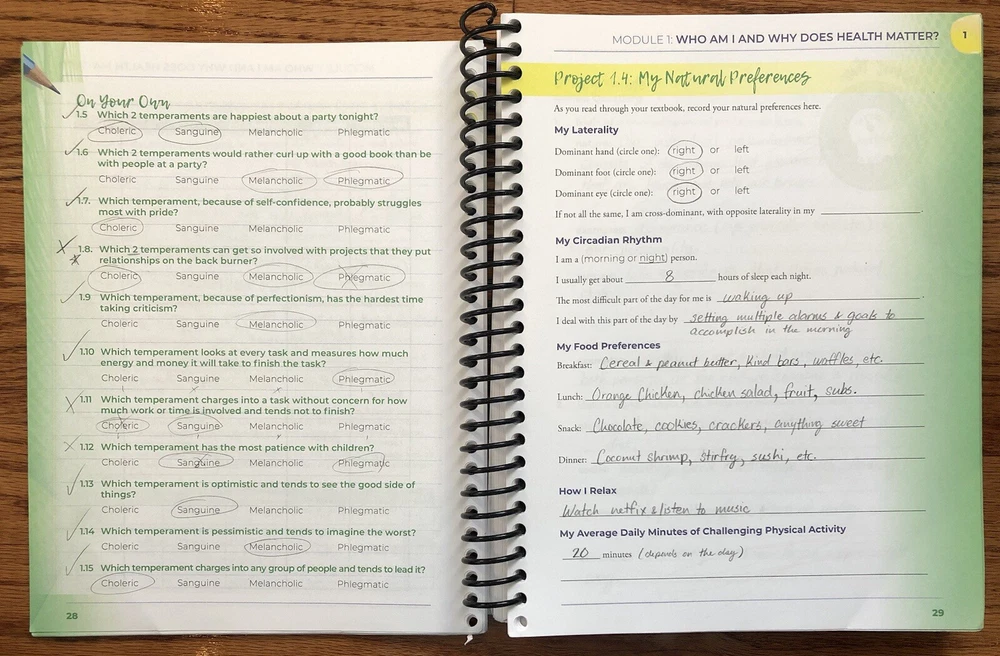 On Your Own
1.5 Which 2 temperaments are happiest about a party tonight?
Choleric Sanguine Melancholic Phlegmatic
1.6 Which 2 temperaments would rather curl up with a good book than be
with people at a party?
Choleric Sanguine Melancholic Phlegmatic
1.7. Which temperament, because of self-confidence, probably struggles
most with pride?
Choleric Sanguine Melancholic Phlegmatic
1.8. Which 2 temperaments can get so involved with projects that they put
relationships on the back burner?
Choleric Sanguine Melancholic Phlegmatic
1.9 Which temperament, because of perfectionism, has the hardest time
taking criticism?
Choleric Sanguine Melancholic Phlegmatic
1.10 Which temperament looks at every task and measures how much
energy and money it will take to finish the task?
Choleric Sanguine Melancholic Phlegmatic
1.11 Which temperament charges into a task without concern for how
much work or time is involved and tends not to finish?
Choleric Sanguine Melancholic Phlegmatic
1.12 Which temperament has the most patience with children?
Choleric Sanguine Melancholic Phlegmatic
1.13 Which temperament is optimistic and tends to see the good side of
things?
Choleric Sanguine Melancholic Phlegmatic
1.14 Which temperament is pessimistic and tends to imagine the worst?
Choleric Sanguine Melancholic Phlegmatic
1.15 Which temperament charges into any group of people and tends to lead it?
Choleric Sanguine Melancholic Phlegmatic
28
MODULE 1: WHO AM I AND WHY DOES HEALTH MATTER? 1
Project 1.4: My Natural Preferences
As you read through your textbook, record your natural preferences here.
My Laterality
Dominant hand (circle one): right or left
Dominant foot (circle one): right or left
Dominant eye (circle one): right or left
If not all the same, I am cross-dominant, with opposite laterality in my
My Circadian Rhythm
I am a (morning or night) person.
I usually get about 8 hours of sleep each night.
The most difficult part of the day for me is waking up.
I deal with this part of the day by setting multiple alarms & goals to
accomplish in the morning
My Food Preferences
Breakfast: Cereal & peanut butter, Kind bars, waffles, etc.
Lunch: Orange Chicken, chicken salad, fruit, subs.
Snack: Chocolate, cookies, crackers, anything sweet
Dinner: Coconut shrimp, stirfry, sushi, etc.
How I Relax
Watch netfix & listen to music
My Average Daily Minutes of Challenging Physical Activity
20 minutes (depends on the day)
29